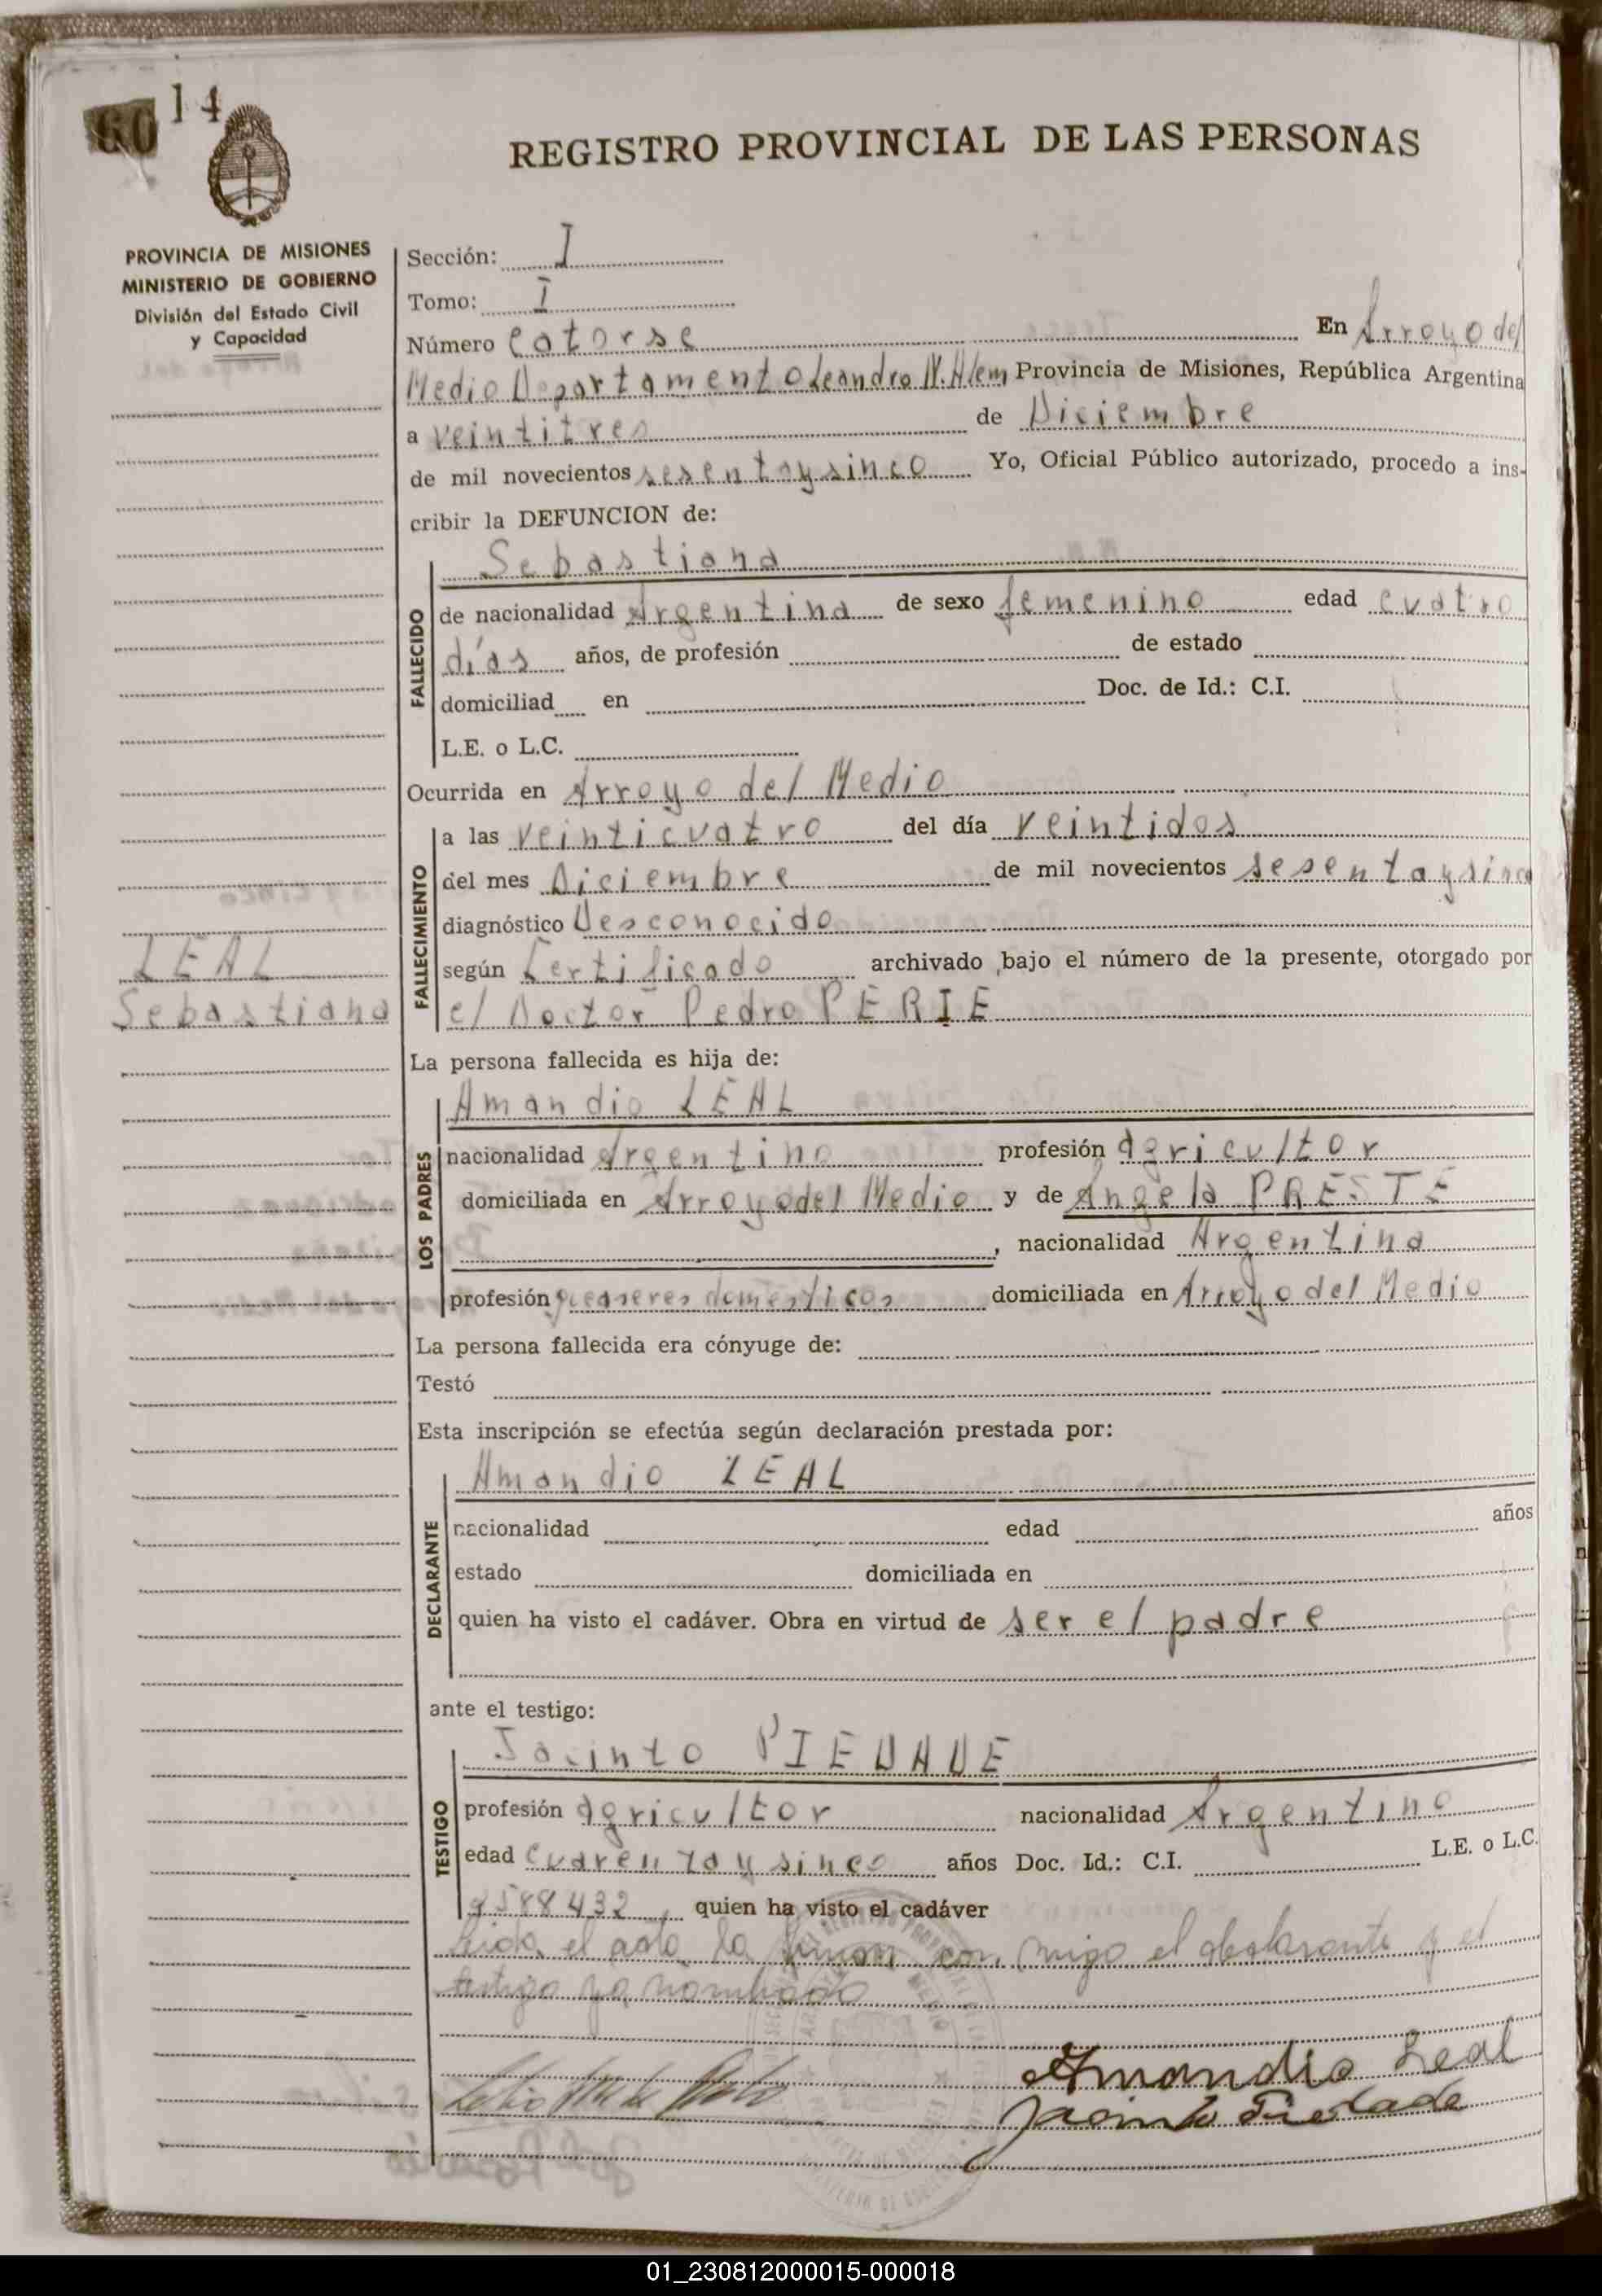 60 14
REGISTRO PROVINCIAL DE LAS PERSONAS
PROVINCIA DE MISIONES
MINISTERIO DE GOBIERNO
División del Estado Civil
y Capacidad
Sección: I
Tomo: I
Número Catorse En Arroyo del
Medio Departamento Leandro N. Alem Provincia de Misiones, República Argentina
a veintitres de Diciembre
de mil novecientos sesentaysinco Yo, Oficial Público autorizado, procedo a ins-
cribir la DEFUNCION de:
FALLECIDO
Sebastiana
de nacionalidad Argentina de sexo femenino edad cuatro
días años, de profesión de estado
domiciliad en Doc. de Id.: C.I.
L.E. o L.C.
Ocurrida en Arroyo del Medio
FALLECIMIENTO
a las veinticuatro del día veintidos
del mes Diciembre de mil novecientos sesentaysinco
diagnóstico Desconocido
según Certificado archivado bajo el número de la presente, otorgado por
el Doctor Pedro PERIE
LEAL
Sebastiana
La persona fallecida es hija de:
LOS PADRES
Amandio LEAL
nacionalidad Argentino profesión agricultor
domiciliada en Arroyo del Medio y de Angela PRESTE
, nacionalidad Argentina
profesión queaseres domésticos domiciliada en Arroyo del Medio
La persona fallecida era cónyuge de:
Testó
Esta inscripción se efectúa según declaración prestada por:
DECLARANTE
Amandio LEAL
nacionalidad edad años
estado domiciliada en
quien ha visto el cadáver. Obra en virtud de ser el padre
ante el testigo:
TESTIGO
Jacinto PIEDADE
profesión agricultor nacionalidad Argentino
edad cuarentaysinco años Doc. Id.: C.I. L.E. o L.C.
7588432, quien ha visto el cadáver
Leida el acta la firman con migo el declarante y el
testigo ya nombrado
Amandio Leal
Jacinto Piedade
01_230812000015-000018